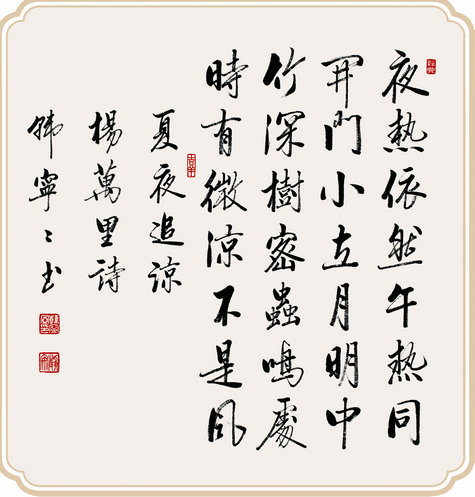 夜熱依然午熱同
開門小立月明中
竹深樹密蟲鳴處
時有微涼不是風
夏夜追涼
楊萬里詩
韩寧〻书